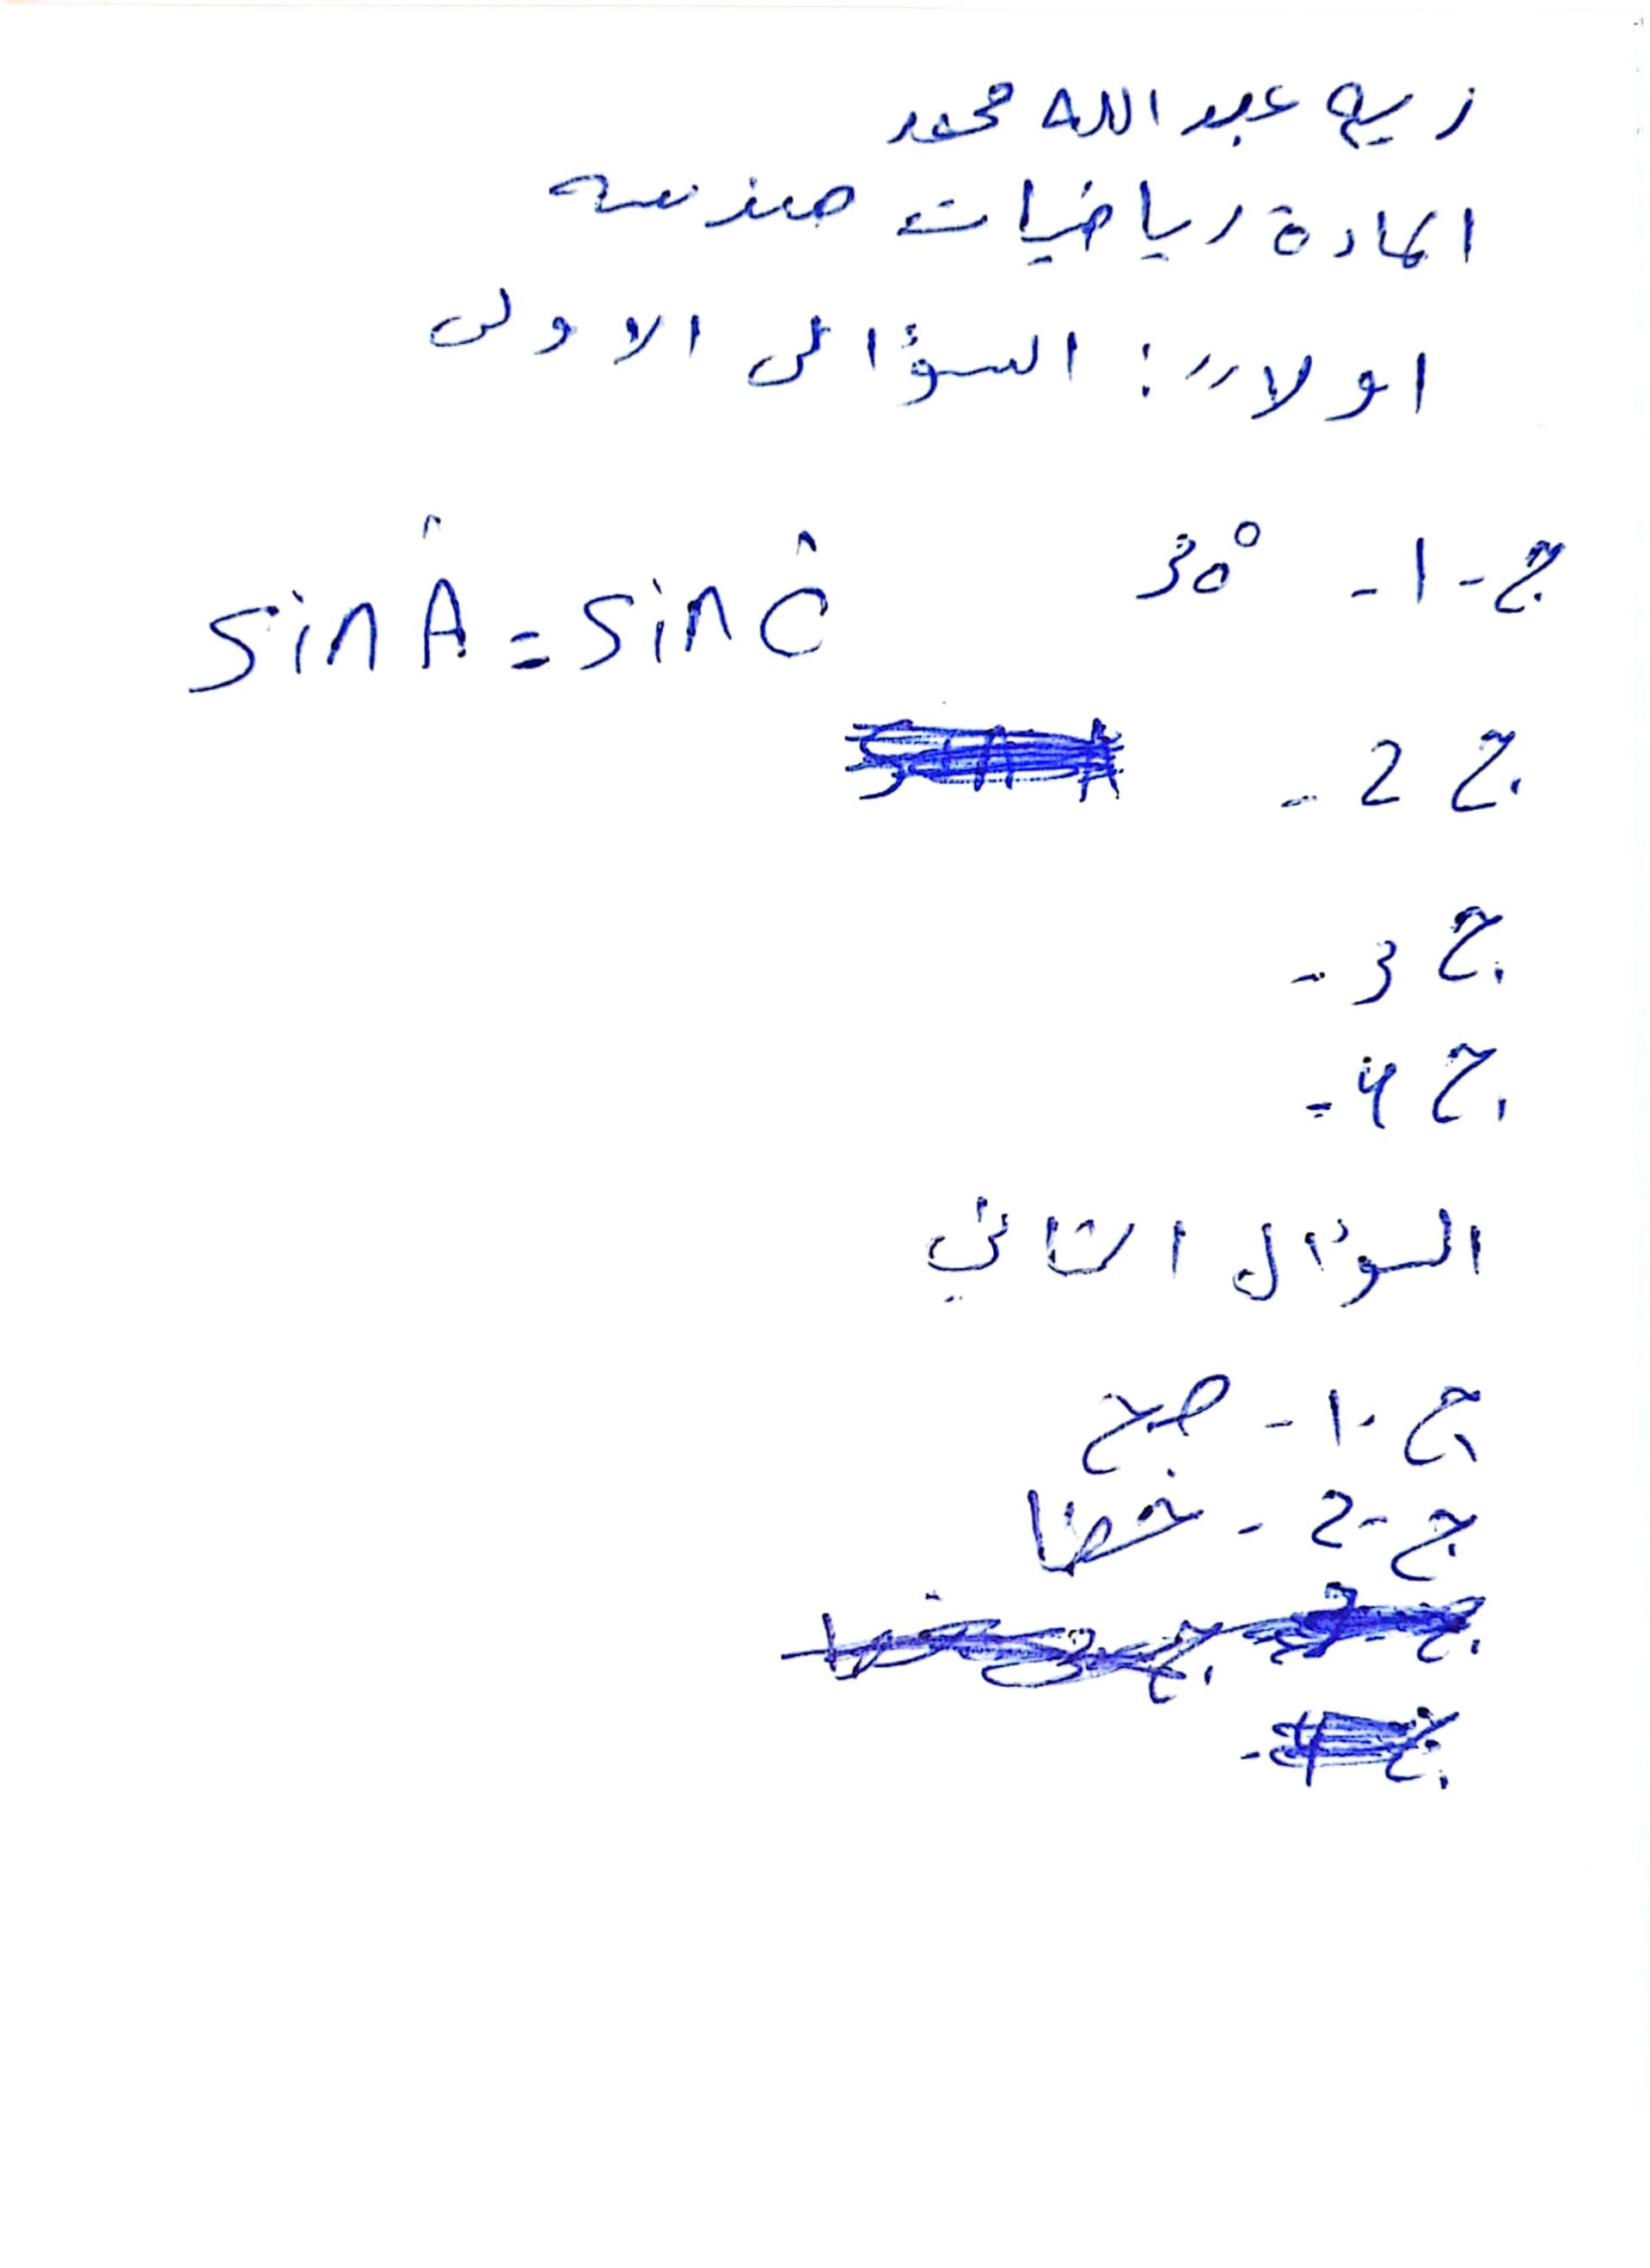 عبد الله محمد
المادة رياضيات هندسه
اولا": السؤال الاولى
ج-1- 30°
sin Â = sin Ĉ
ج 2-
ج 3-
ج 4-
السؤال الثاني
ج-1- صح
ج-2- خطا